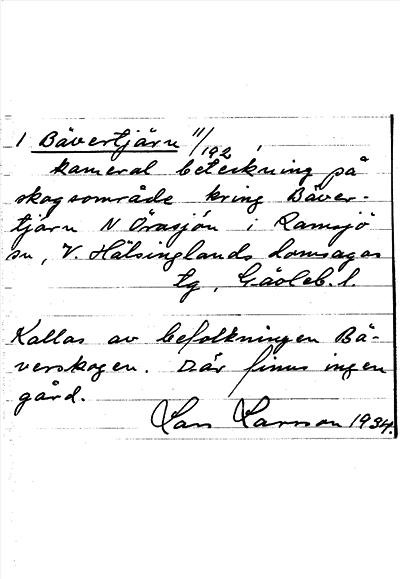 1 Bävertjärn 11/192 1
kameral beteckning på
skogsområde kring Bäver-
tjärn N Örasjön i Ramsjö
sn, V. Hälsinglands domsagas
tg, Gävleb. l.
Kallas av befolkningen Bä-
verskogen. Där finns ingen
gård.
Lars Larsson 1934.